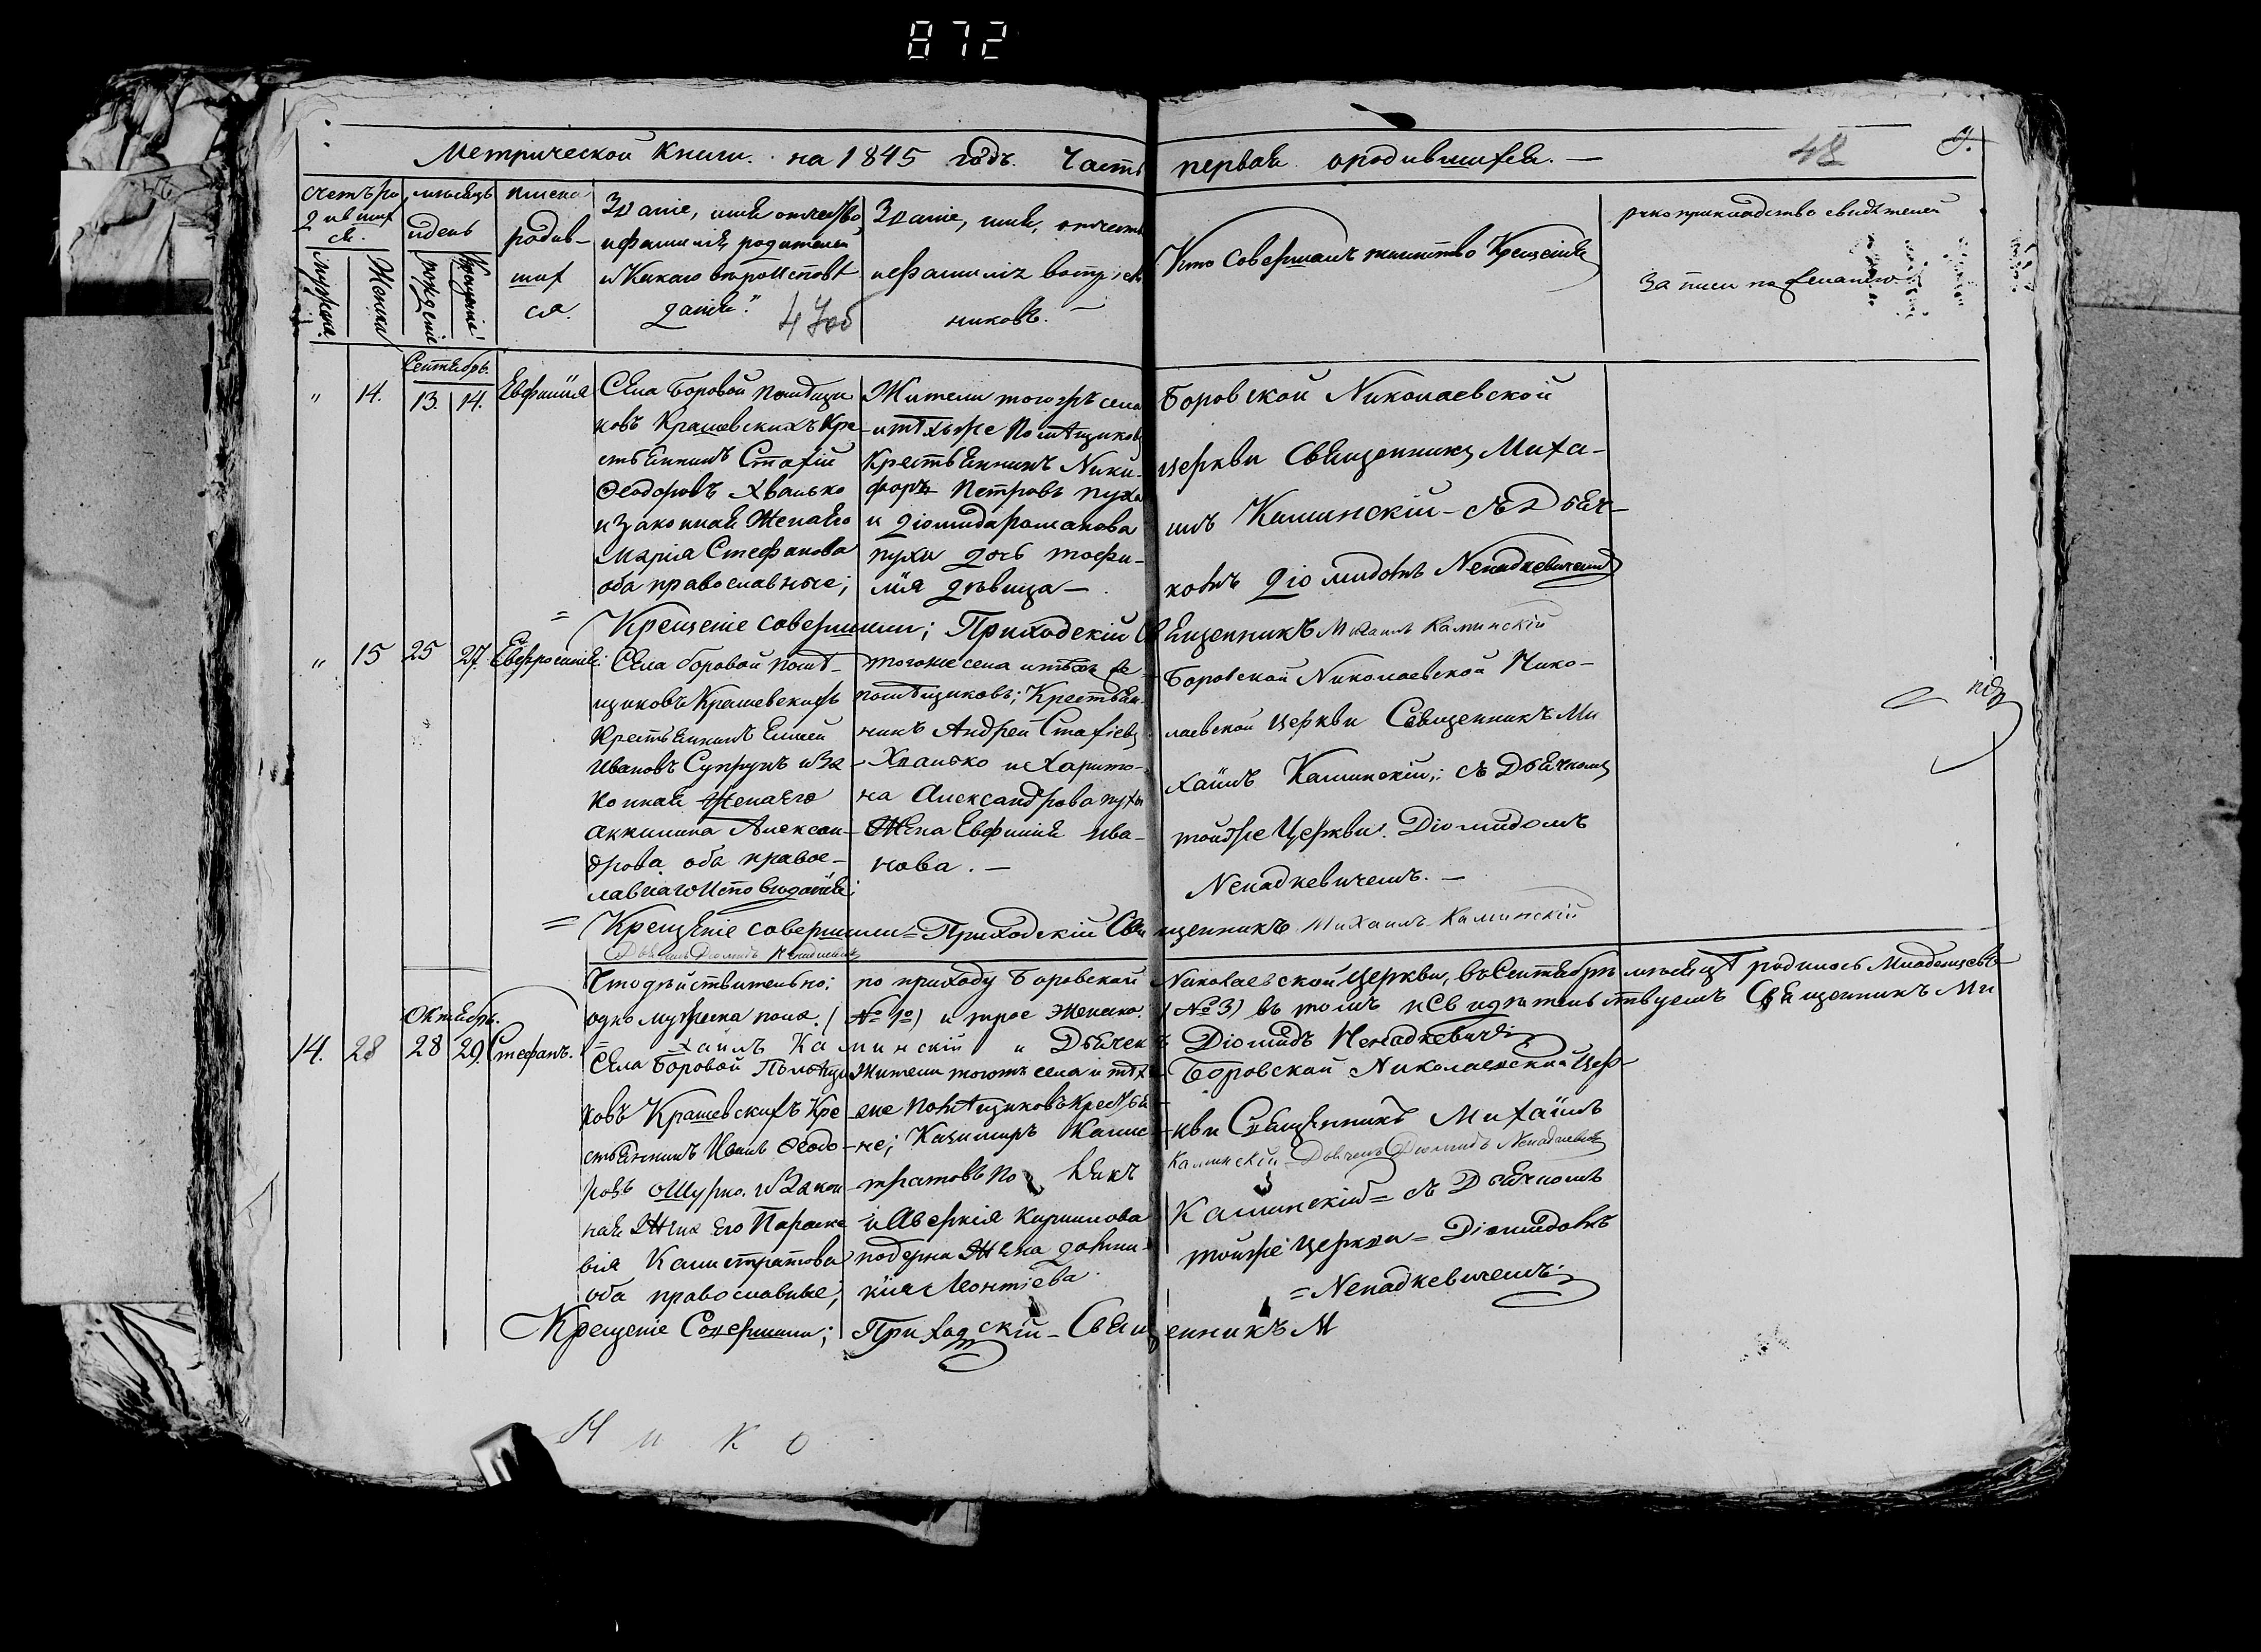 872
Метрической Книги на 1845 годъ. Часть первая о родившихся. —
48
9.
счетъ ро
дивших
ся.
мужеска
Женска
мѣсяцъ
и день
рожденіе
Крещеніе
имена
родив-
ших
ся.
Званіе, имя отчество,
и фамилія, родителей,
и Какаго вѣроисповѣ
данія.
47об
Званіе, имя, отчеств
и фамилія воспріем
никовъ. —
Кто Совершалъ таинство Крещенія
рукоприкладство свидѣтелей
записи по желанію
Сентябрь.
" 14. 13. 14. Евфимія
Села Боровой помѣщи
ковъ Крашевскихъ Кре
стьянинъ Стахій
Ѳеодоровъ Хванько
и Законная Жена его
Марія Стефанова
оба православные;
Жители того жъ села
и тѣхъ же Помѣщиковъ
Крестьянинъ Ники-
форъ Петровъ пуха
и Діомида романова
пухи дочь
дѣвица —
Боровской Николаевской
церкви Священникъ Миха-
илъ Каминскій — съ Дьяч-
комъ Діомидомъ Ненадкевичемъ
= Крещеніе совершили; Приходскій Священникъ Михаилъ Каминскій
" 15 25 27. Евфросинія
Села боровой помѣ-
щиковъ Крашевскихъ
Крестьянинъ Елисей
Ивановъ Супрунъ и За
конная Жена его
Акилина Алексан-
дрова оба правос-
лавнаго Исповѣданія;
того же села и тѣхъ же
помѣщиковъ; Крестьян
нинъ Андрей Стахіевъ
Хванько и Харито-
на Александрова пухи
Жена Евфимія Ива-
нова. —
Боровской Николаевской Нико-
лаевской Церкви Священникъ Ми
хаилъ Каминскій; съ Дьячкомъ
тойже Церкви Діомидомъ
Ненадкевичемъ. —
= Крещеніе совершили = Приходскій Священникъ Михаилъ Каминскій
Дьячокъ Діомидъ Ненадкевичъ
Что дѣйствительно; по приходу Боровской Николаевской Церкви, въ Сентябрѣ мѣсяцѣ родилось Младенцевъ
одно мужеска пола. (№ 1º) и трое Женска. (№ 3) въ томъ и Свидѣтельствуемъ Священникъ Ми
хаилъ Каминскій и Дьячекъ Діомидъ Ненадкевичъ
Октябрь.
14. 28 28 29. Стефанъ.
Села Боровой Помѣщи
ковъ Крашевскихъ Кре
стьянинъ Иванъ Ѳеодо-
ровъ и Закон
ная Жена его Параске
вія Калистратова
оба православные;
Жители тогожъ села и тѣхъ
же Помѣщиковъ Крестья
не; Казимиръ Калис
тратовъ
и Аверкія Кириллова
Жена
кія Леонтіева
Боровской Николаевской Цер-
кви Священникъ Михаилъ
Каминскій Дьячекъ Діомидъ Ненадкевичъ
Каминскій = съ Дьячкомъ
тойже Церкви = Діомидомъ
= Ненадкевичемъ
Крещеніе Совершили; Приходскій — Священникъ М
Н и к о